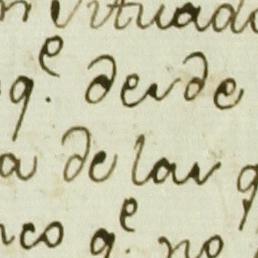 n situado
q.e desde
a de las q
nco q.e no